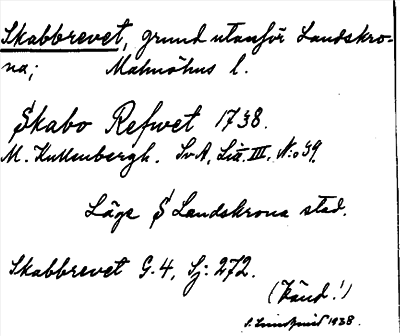 Skabbrevet, grund utanför Landskro-
na; Malmöhus l.
Skabo Refwet 1738.
M. Kullenbergh. SvA, Lit. III, N:o 39.
Läge S Landskrona stad.
Skabbrevet G.4, Sj: 272.
(känd!)
S. Lindqvist 1938.